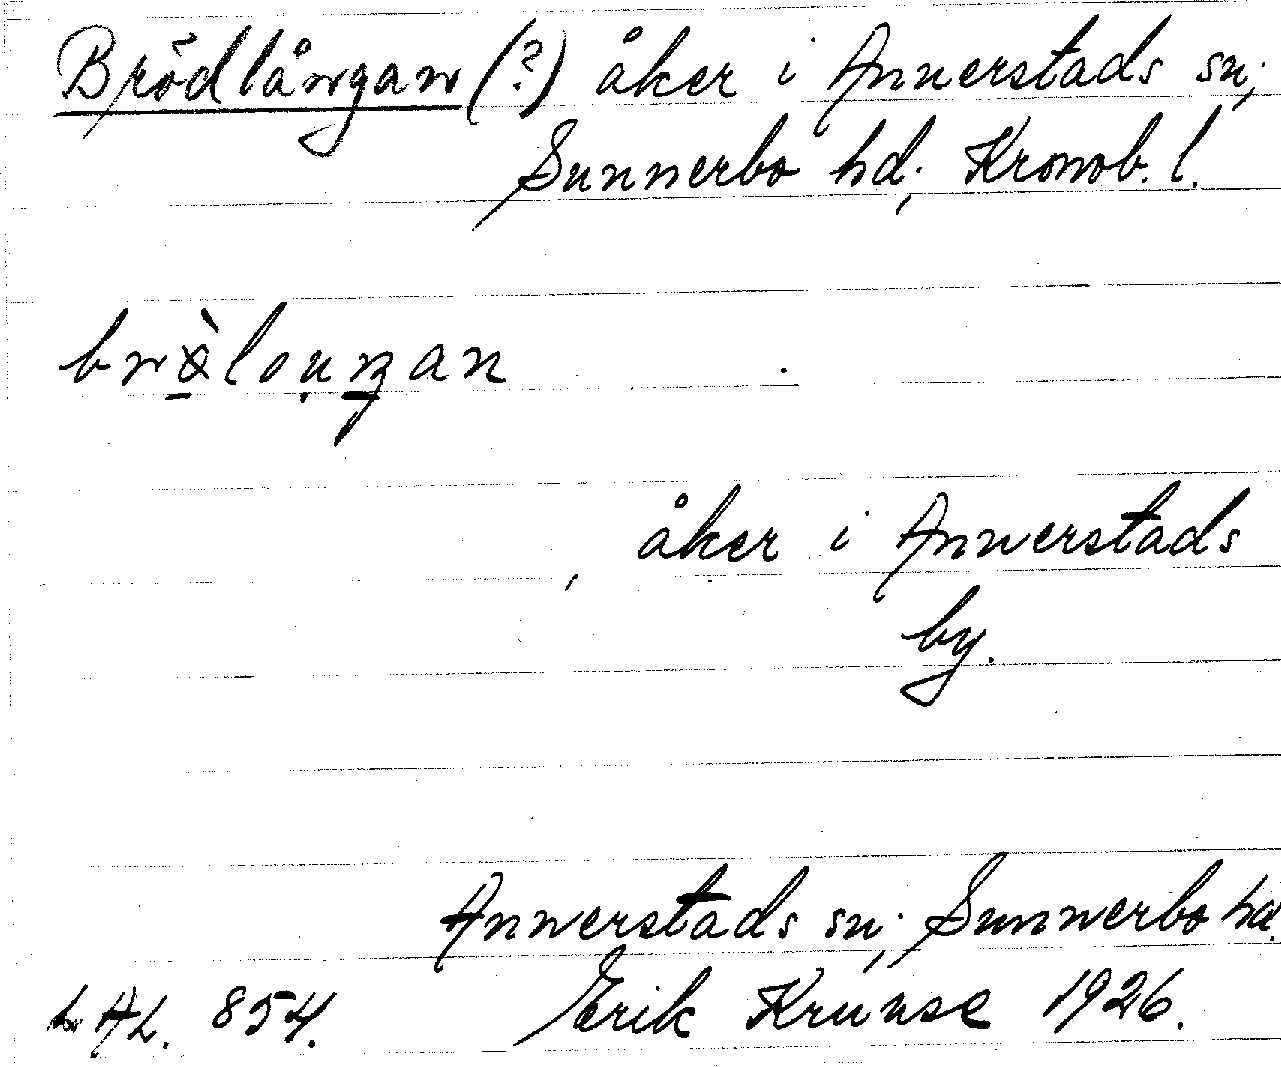 Brödlångan (?) åker i Annerstads sn;
Sunnerbo hd; Kronob. l.
åker i Annerstads
by.
Annerstads sn; Sunnerbo hd.
AL. 854. Erik Krunse 1926.